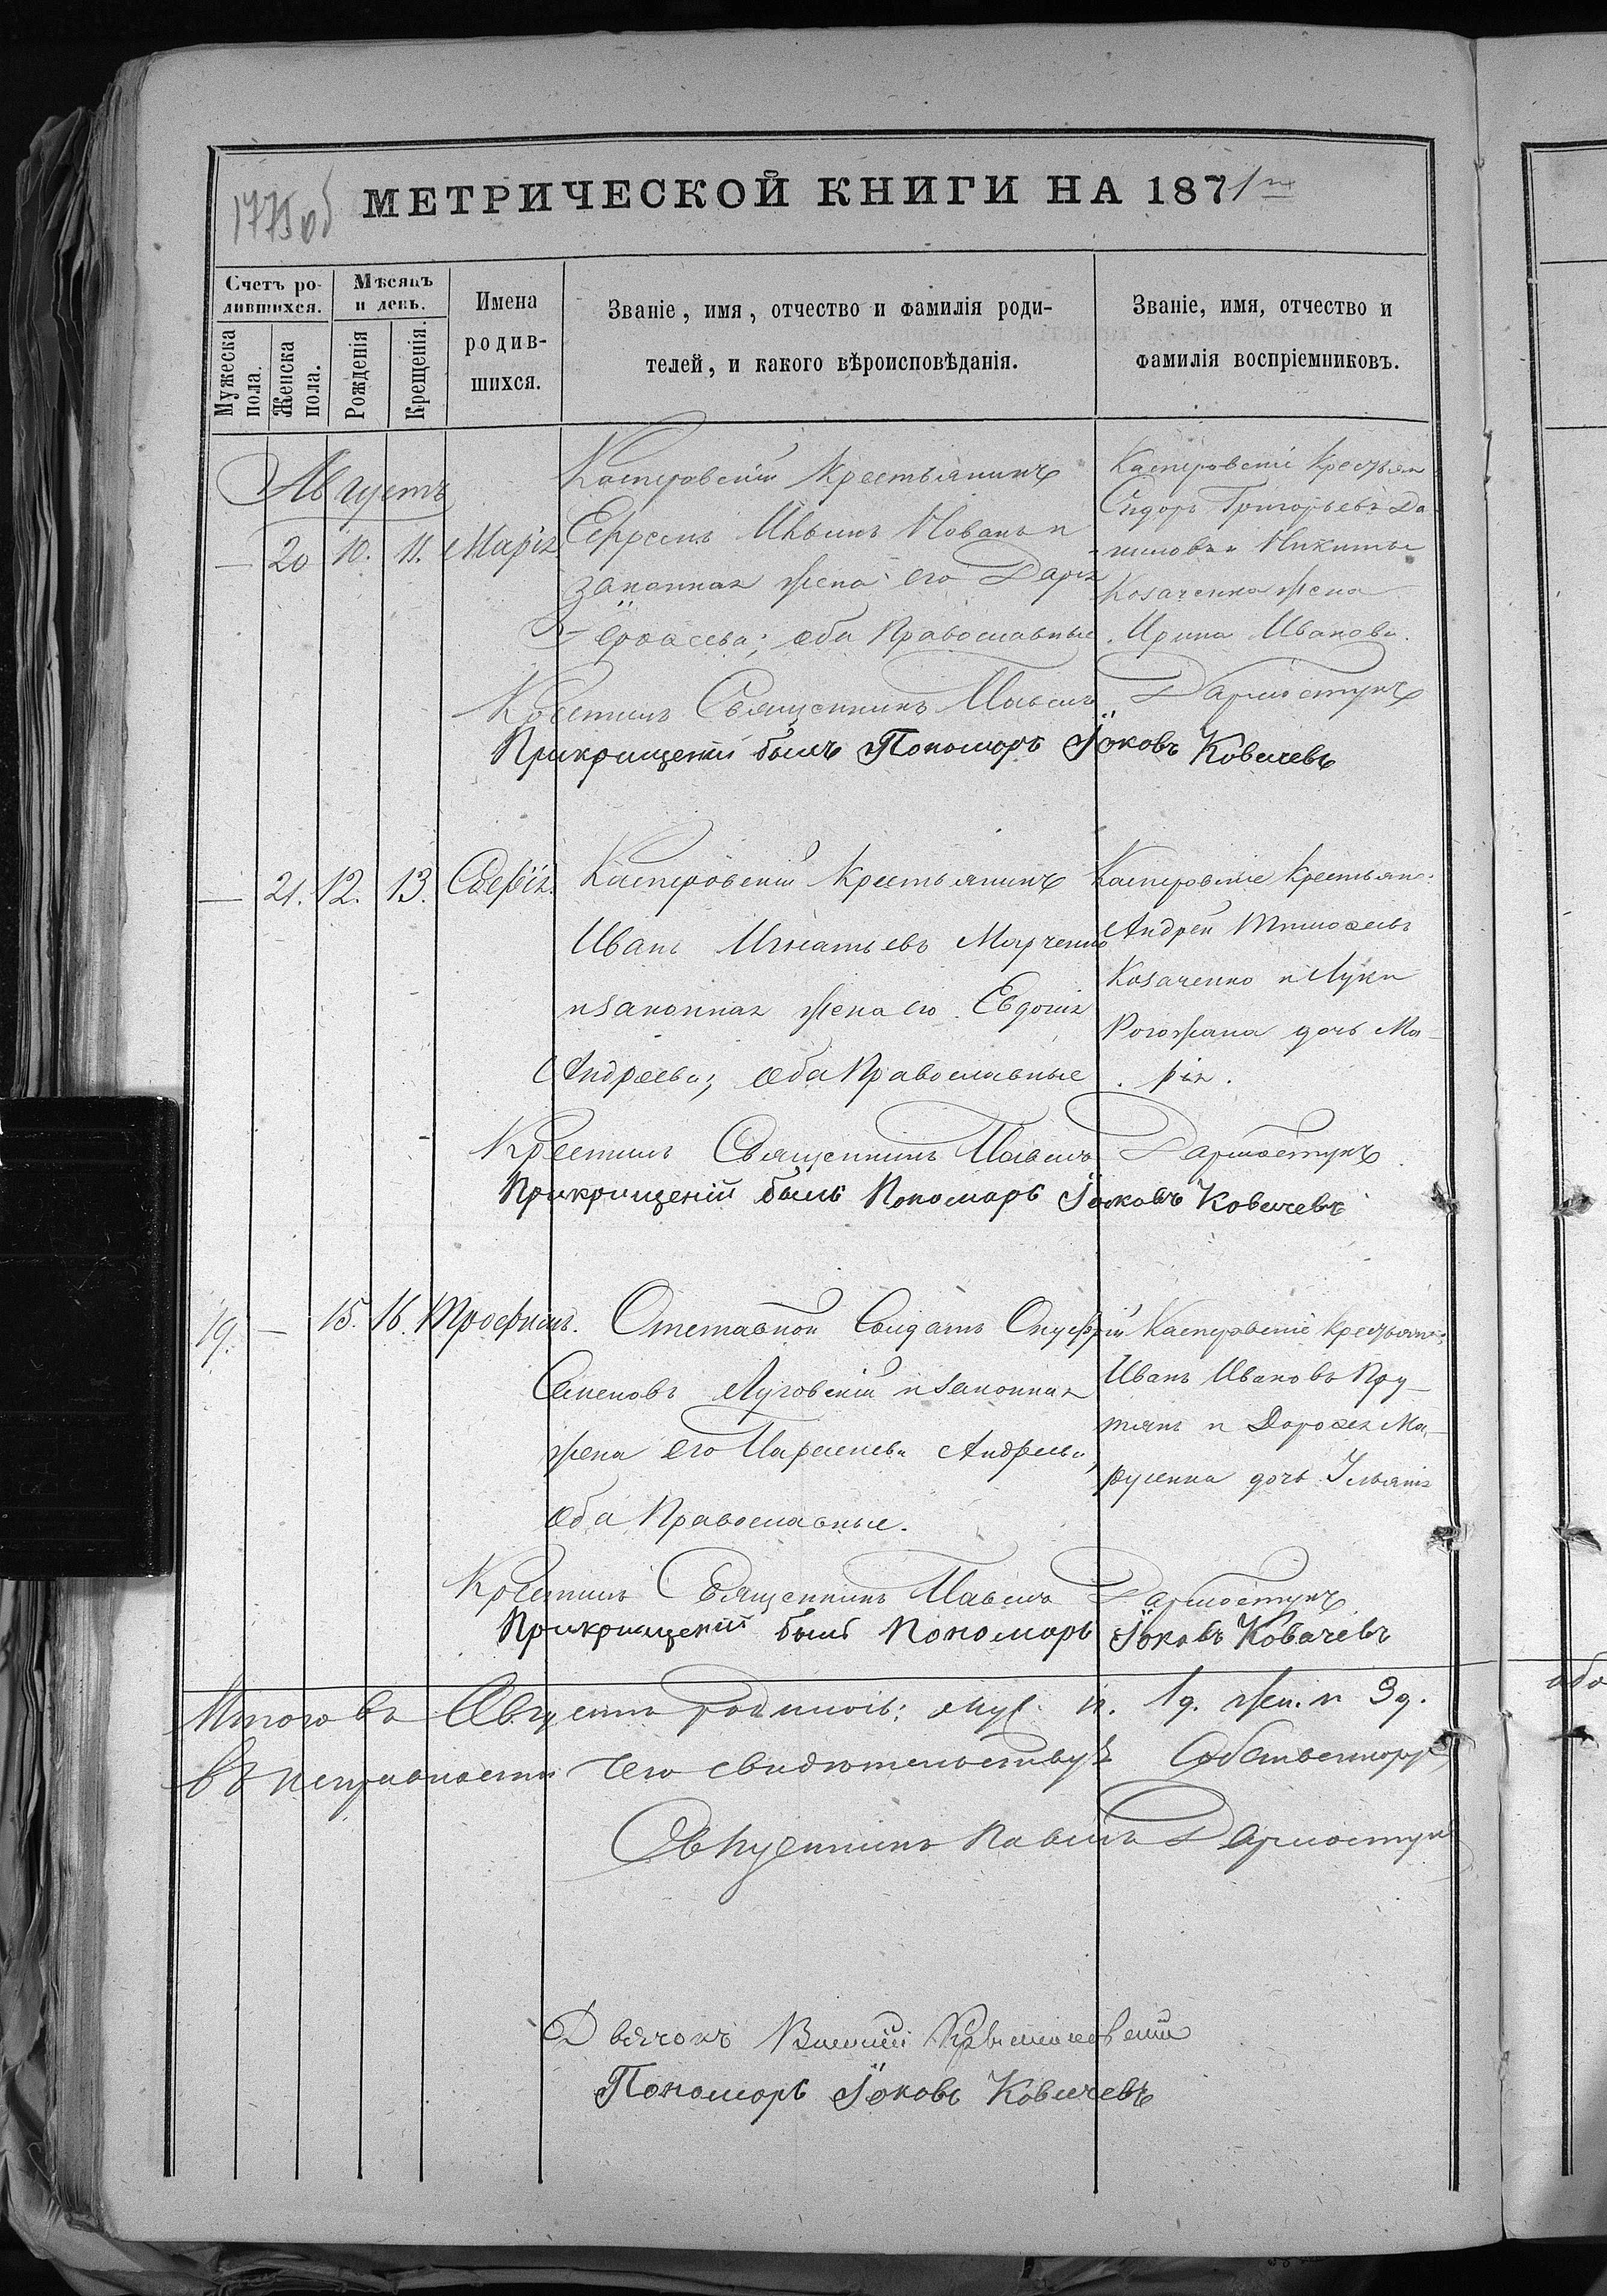 1775 об
МЕТРИЧЕСКОЙ КНИГИ НА 1871
Счетъ родившихся.
Мѣсяцъ и день.
Мужеска пола.
Женска пола.
Рожденія
Крещенія.
Имена родив-
шихся.
Званіе, имя, отчество и фамилія роди-
телей, и какого вѣроисповѣданія.
Званіе, имя, отчество и
фамилія воспріемниковъ.
Августъ
— 20 10. 11. Марія
Касперовскій крестьянинъ
Ефремъ Ильинъ и
законная жена его Дарія
оба Православные
Касперовскіе крестьян
Сидоръ Григорьевъ Да
Никиты
Козаченка жена
Ирина Иванова.
Крестилъ Священникъ Павелъ Дармостукъ
Прикрищеніи былъ Пономарь Іоковъ Ковачевъ
— 21. 12. 13. Софія.
Касперовскій крестьянинъ
Иванъ Игнатьевъ Марченко
и законная жена его Евдокія
Андреева; оба Православные
Касперовскіе крестьяне:
Андрей Тимофеевъ
Козаченко и Луки
Рогожана дочь Ма-
рія.
Крестилъ Священникъ Павелъ Дармостукъ
Прикрищеній былъ Пономарь Іоковъ Ковачевъ
19. — 15. 16. Трофимъ.
Отставной Солдатъ Онуфрій
Семеновъ Луговскій и законная
жена его Параскева Андреева,
оба Православные.
Касперовскіе крестьяне:
Иванъ Ивановъ Пру-
тянъ и Дорофея Ма-
русенка дочь Іуліанія
Крестилъ Священникъ Павелъ Дармостукъ
Прикрищеній былъ Пономарь Іоковъ Ковачевъ
Итого въ Августѣ родилось: муж. п. 1 д. жен. п. 3 д.
въ исправности чего свидѣтельствуя
Священникъ Павелъ Дармостукъ
Дьячокъ
Пономарь Іоковъ Ковачевъ